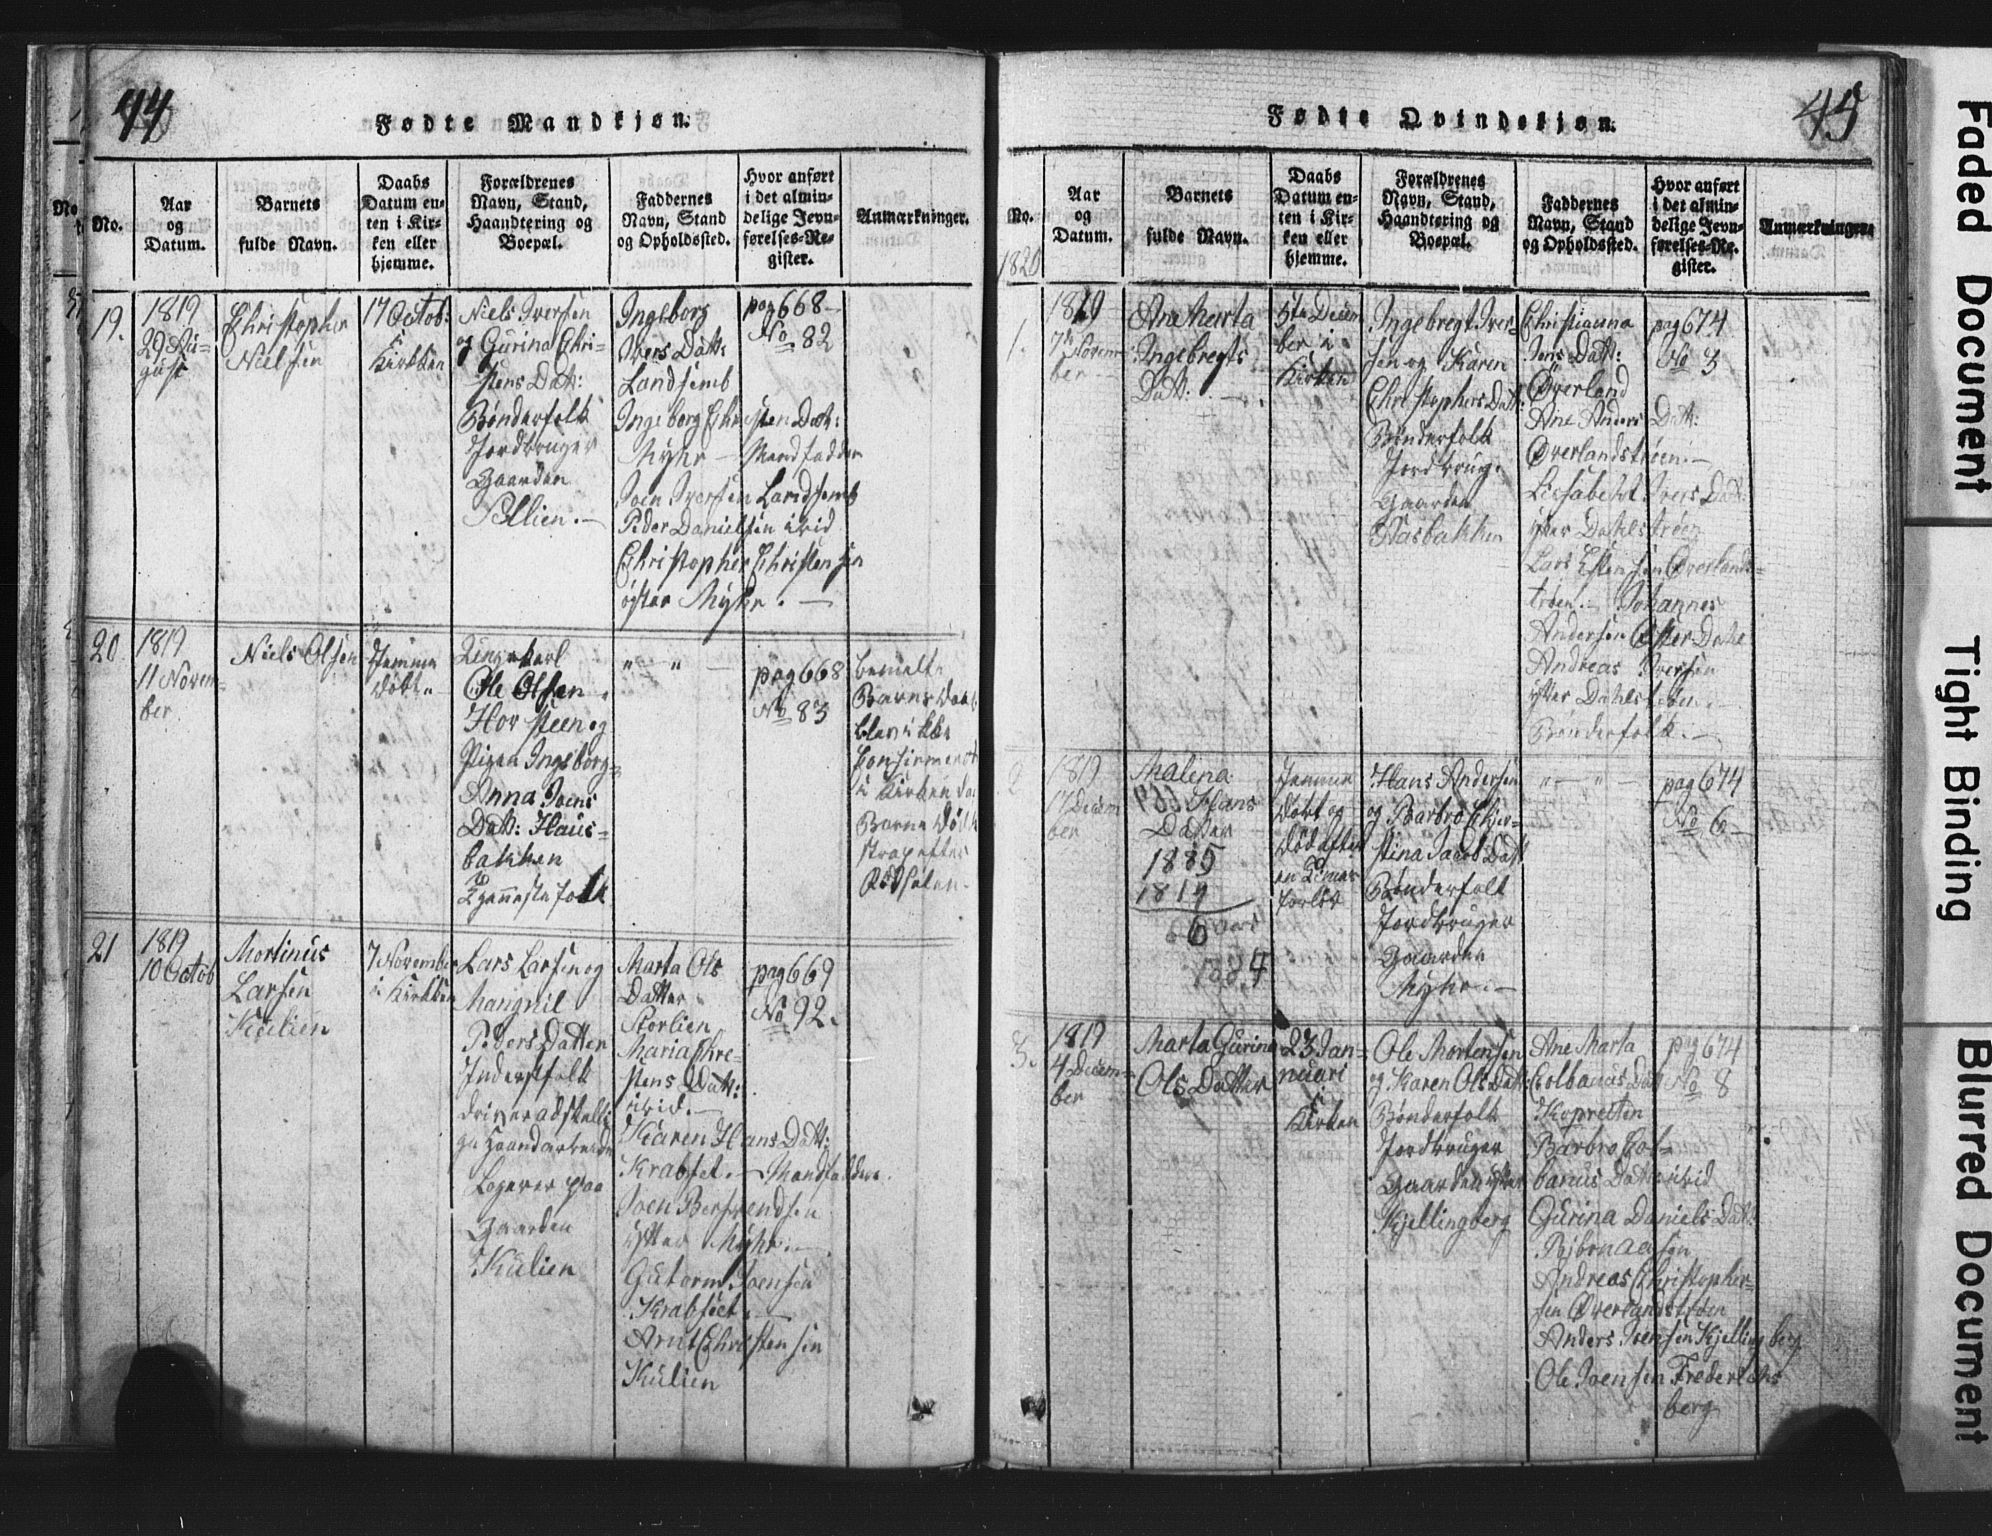 44
Fødte Mandkjøn.
No.
Aar
og
Datum.
Barnets
fulde Navn.
Daabs
Datum en-
ten i Kir-
ken eller
hjemme.
Forældrenes
Navn, Stand,
Haandtering og
Boepæl.
Faddernes
Navn, Stand
og Opholdssted.
Hvor anført
i det almin-
delige Jevn-
førelses-Re-
gister.
Anmærkninger.
19.
1819
29 Au-
gust
Christopher
Nielsen
17 Octob:
i
Kirkken
Niels Iversen
og Gurina Chri-
stens Dat:
Bønderfolk
Jordbruger
Gaarden
Ingeborg
Ivers Datt:
Landsemb
Ingeborg Christen Datt:
Myhr — Mandfadder
Joen Iversen Landsemb
Peder Danielsen ibid
Christopher Christensen
øster Myhr. —
pag 668 —
No 82
20
1819
11 Novem-
ber
Niels Olsen
Hjemme
døbt
Ungekarl
Ole Olsen
Hov steen og
Pigen Ingeborg
Anna Joens
Dat: Haus-
bakken
Tjenestefolk
" — " —
pag 668
No 83
bemelte
Barns Daab
blev ikke
Confirmeret
i Kirken da
Barne døde
strax efter
Fødselen.
21
1819
10 Octob
Mortinus
Larsen
Kulien
7 November
i Kirkken
Lars Larsen og
Mangnil
Peders Datter
Inderstfolk
driver adskelli-
ge Haandarbeide
Logerer paa
Gaarden
Kulien
Marta Ols
Datter
Storlien
Maria Chre-
stens Datt:
ibid. —
Karen Hans Datt:
Krabset. — Mandfaddere
Joen Bersvendsen
ytter Myhr. —
Gutorm Joensen
Krabset. —
Arnt Christensen
Kulien
pag 669
No 92.
45
Fødte Qvindekjøn.
No.
Aar
og
Datum.
Barnets
fulde Navn.
Daabs
Datum en-
ten i Kir-
ken eller
hjemme.
Forældrenes
Navn, Stand,
Haandtering og
Boepæl.
Faddernes
Navn, Stand
og Opholdssted.
Hvor anført
i det almin-
delige Jevn-
førelses-Re-
gister.
Anmærkninger.
1820
1.
1819
7 Novem-
ber
Ane Marta
Ingebregts
Datt:
5te Decem
ber i
Kirken
Ingebregt Iver-
sen og Karen
Christophers Datt:
Bønderfolk
Jordbrug.
Gaarden
Aasbakken
Christianna
Jens Datt:
Øverland
Ane Anders Datt:
Øverlandstrøen. —
Lissabeht Ivers Datt:
ytter Dahlstrøen
Lars Estensen Øverlands-
trøen. — Johannes
Andersen Øster Dahl
Andreas Iversen
ytter Dahlstrøen. —
Bønderfolk. —
pag 674
No 3
2
1819
17 Decem
ber
Malena
Hans
Datter
1885
1819
6
Hjemme
døbt og
død efter
en Times
forløb
Hans Andersen
og Barbro Chri-
stina Jacob Datt
Bønderfolk
Jordbruger
Gaarden
Myhr. —
" — " —
pag 674
No 6 —
3.
1819
4 Decem-
ber
Marta Gurina
Ols Datter
23 Jan-
nuari
i
Kirken
Ole Mortensen
og Karen Ols Datt:
Bønderfolk
Jordbruger
Gaarden ytter
Kjellingberg
Ane Marta
Colbanus Datt
Kopretten
Barbro Col-
banus Datt: ibid
Gurina Daniels Datt:
Andreas Christopher-
sen Øverlandstrøen
Anders Joensen Kjellingberg
Ole Joensen Frederichs
berg
pag 674
No 8
Faded Document
Tight Binding
Blurred Document